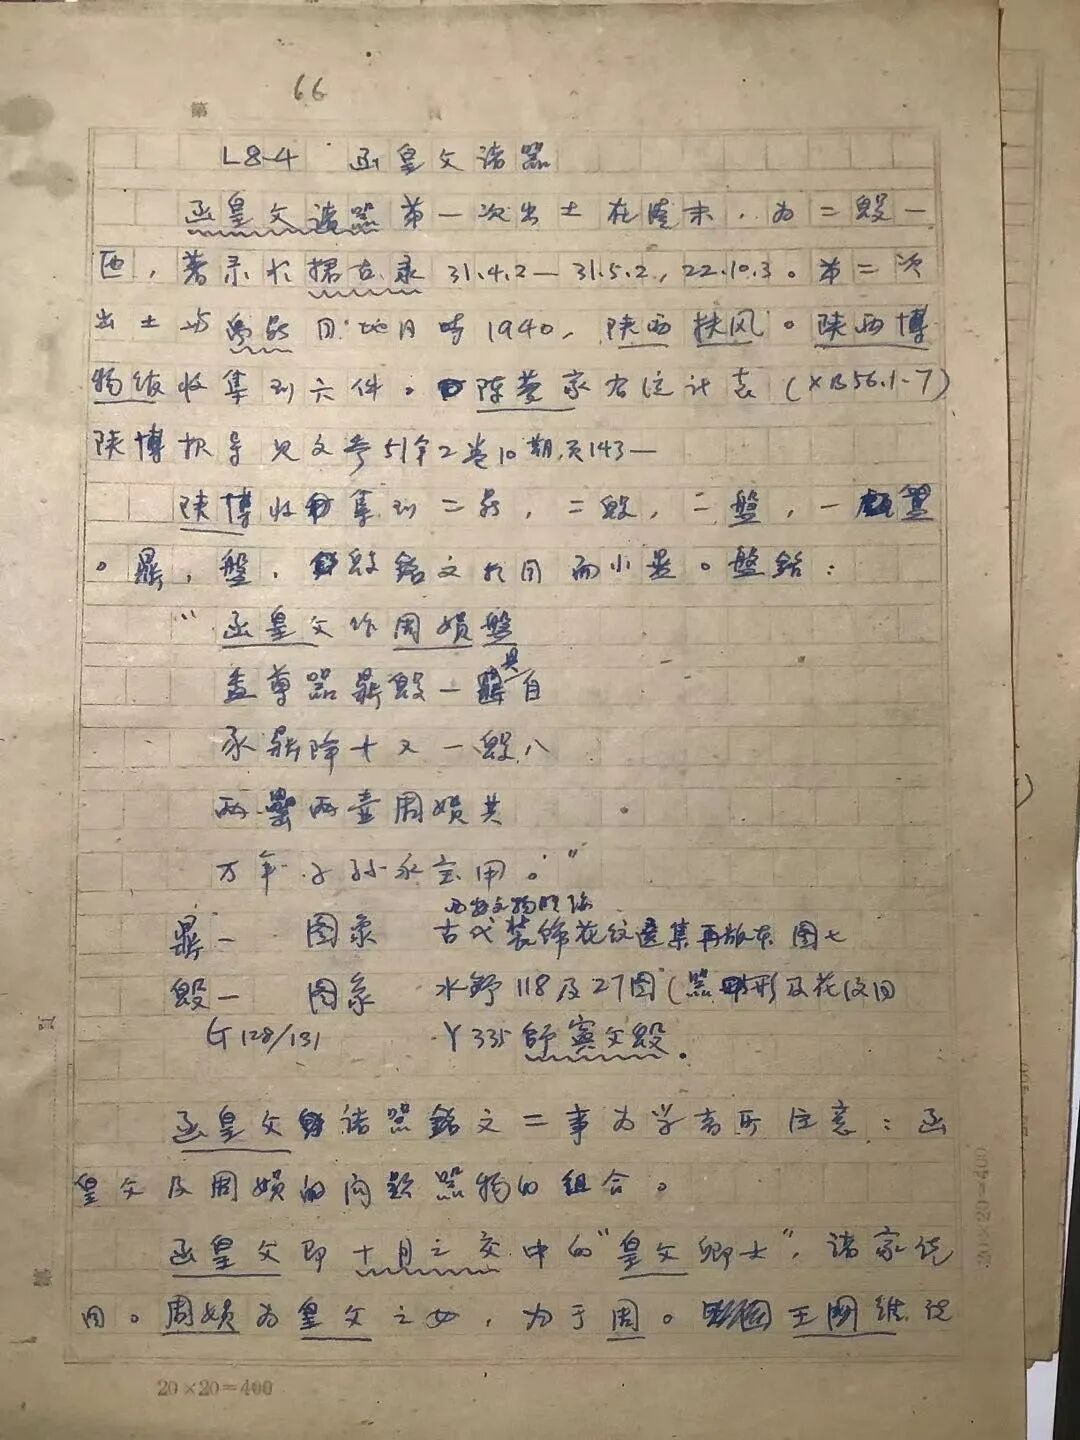 66
第 页
L8-4 函皇父诸器
函皇父诸器第一次出土在清末，为二毁一
匜，著录于攈古录31.4.2—31.5.2，22.10.3。第二次
出土与禹鼎同地同时1940，陕西扶风。陕西博
物馆收集到六件。陈梦家有统计表(XB56.1-7)
陕博报导见文参51年2卷10期,页143—
陕博收集到二鼎，二毁，一盘，一
。鼎，盘，毁铭文相同而小异。盘铭：
“函皇父作周娟盘
盉尊器鼎毁一具自
豕鼎降十又一毁八
两罍两壶周娟其
万年子孙永宝用。”
鼎一 图象 古代装饰花纹选集再版本 图七
毁一 图象 水野118及27图(器形及花纹同
G128/131 Y335 毁。
函皇父诸器铭文二事为学者所注意：函
皇父及周娟的问题器物的组合。
函皇父即十月之交中的“皇父卿士”，诸家说
同。周娟为皇父之女，为于周。王国维说
20×20=400
20×20=400